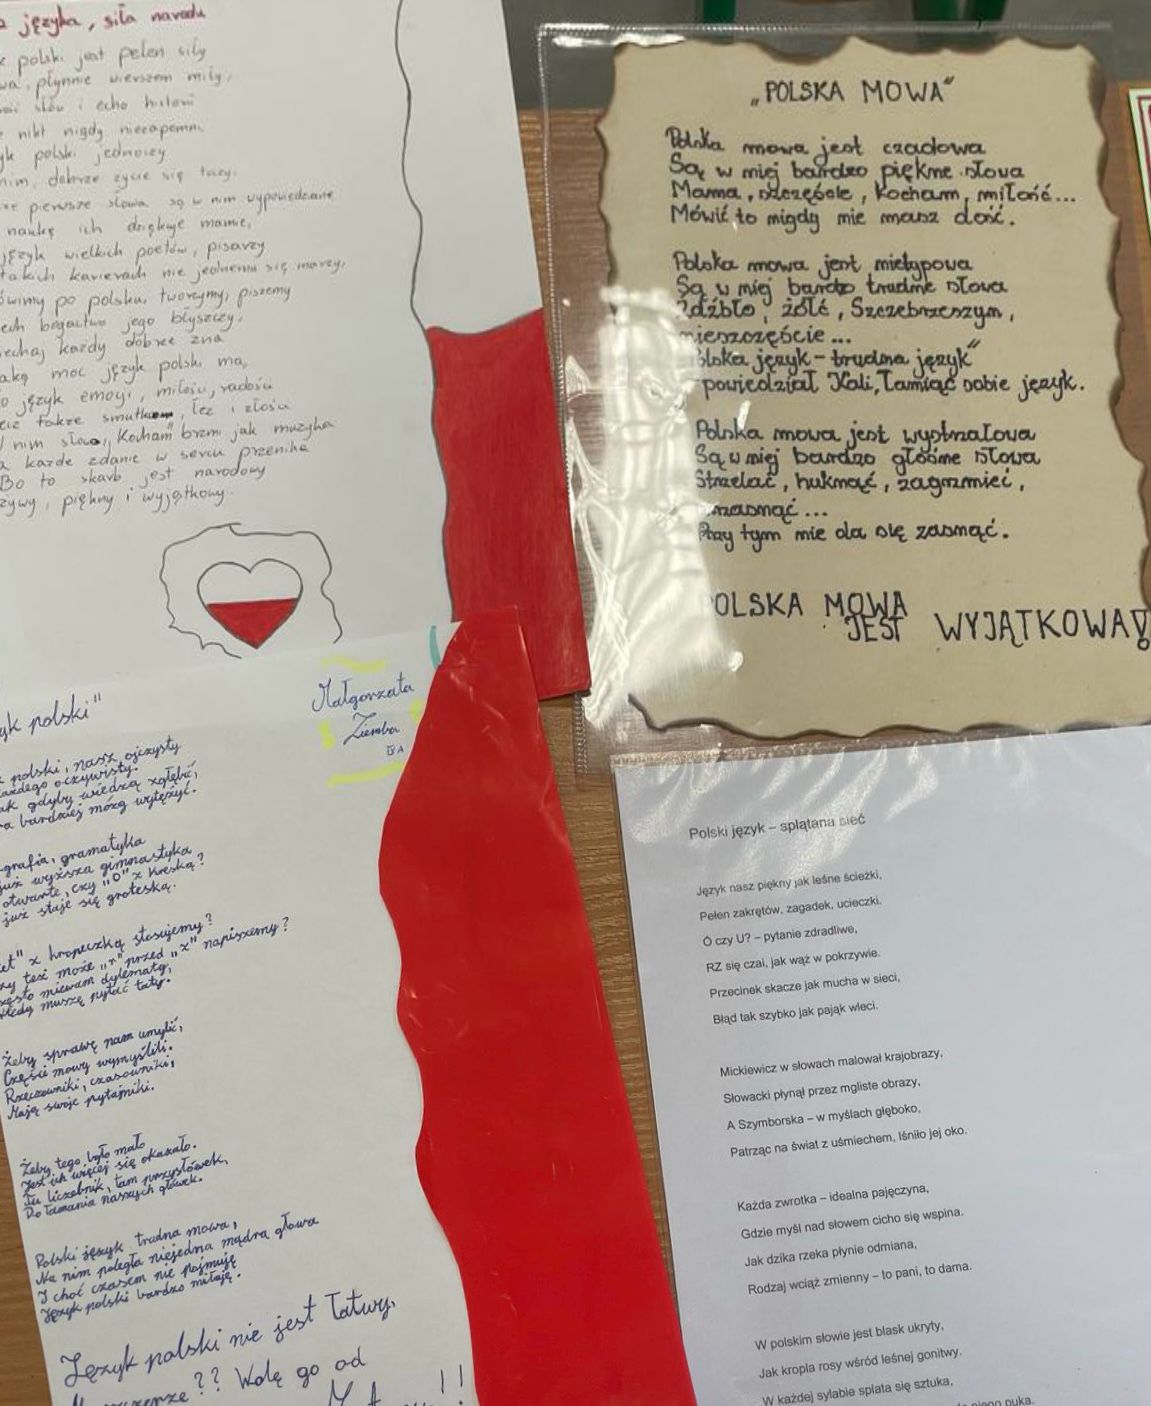 języka, siła narodu
polski jest pełen siły
płynnie wierszem miły,
słów i echo historii
nikt nigdy niezapomni
polski jednoczy
nim, dobrze życie się toczy.
pierwsze słowa są w nim wypowiedziane
naukę ich dziękuję mamie,
język wielkich poetów, pisarzy
takich karierach nie jednemu się marzy,
po polsku, tworzymy, piszemy
bogactwo jego błyszczy.
każdy dobrze zna
moc język polski ma,
język emocji, miłości, radości
także smutku, łez i złości
nim słowo „Kocham" brzmi jak muzyka
każde zdanie w sercu przenika
Bo to skarb jest narodowy
żywy, piękny i wyjątkowy.
Małgorzata
Ziemba
polski"
polski, nasz ojczysty
każdego oczywisty.
gdyby wiedzą zgłębić,
bardziej mózg wytężyć.
grafia, gramatyka
już wyższa gimnastyka
otwarte, czy "O" z kreską?
już staje się groteską.
z kropeczką stosujemy?
też może „r" przed „z" napiszemy?
często miewam dylematy,
muszę pytać taty.
Żeby sprawę nam umilić,
Części mowy wymyślili.
Rzeczowniki, czasowniki,
Mają swoje pytajniki.
Żeby tego było mało
Jest ich więcej się okazało.
Tu liczebnik, tam przysłówek,
Do łamania naszych główek.
Polski język trudna mowa,
Na nim poległa niejedna mądra głowa
I choć czasem nie pojmuję
Język polski bardzo miłuję.
Język polski nie jest łatwy,
?? Wolę go od
!!
„POLSKA MOWA"
Polska mowa jest czadowa
Są w niej bardzo piękne słowa
Mama, szczęście, kocham, miłość...
Mówić to nigdy nie masz dość.
Polska mowa jest nietypowa
Są w niej bardzo trudne słowa
Źdźbło, żółć, Szczebrzeszyn,
nieszczęście...
język - trudna język"
powiedział Kali, łamiąc sobie język.
Polska mowa jest wystrzałowa
Są w niej bardzo głośne słowa
Strzelać, huknąć, zagrzmieć,
...
Przy tym nie da się zasnąć.
POLSKA MOWA
JEST WYJĄTKOWA!
Polski język – splątana sieć
Język nasz piękny jak leśne ścieżki,
Pełen zakrętów, zagadek, ucieczki.
Ó czy U? – pytanie zdradliwe,
RZ się czai, jak wąż w pokrzywie.
Przecinek skacze jak mucha w sieci,
Błąd tak szybko jak pająk wleci.
Mickiewicz w słowach malował krajobrazy,
Słowacki płynął przez mgliste obrazy,
A Szymborska – w myślach głęboko,
Patrząc na świat z uśmiechem, lśniło jej oko.
Każda zwrotka – idealna pajęczyna,
Gdzie myśl nad słowem cicho się wspina.
Jak dzika rzeka płynie odmiana,
Rodzaj wciąż zmienny – to pani, to dama.
W polskim słowie jest blask ukryty,
Jak kropla rosy wśród leśnej gonitwy.
W każdej sylabie splata się sztuka,